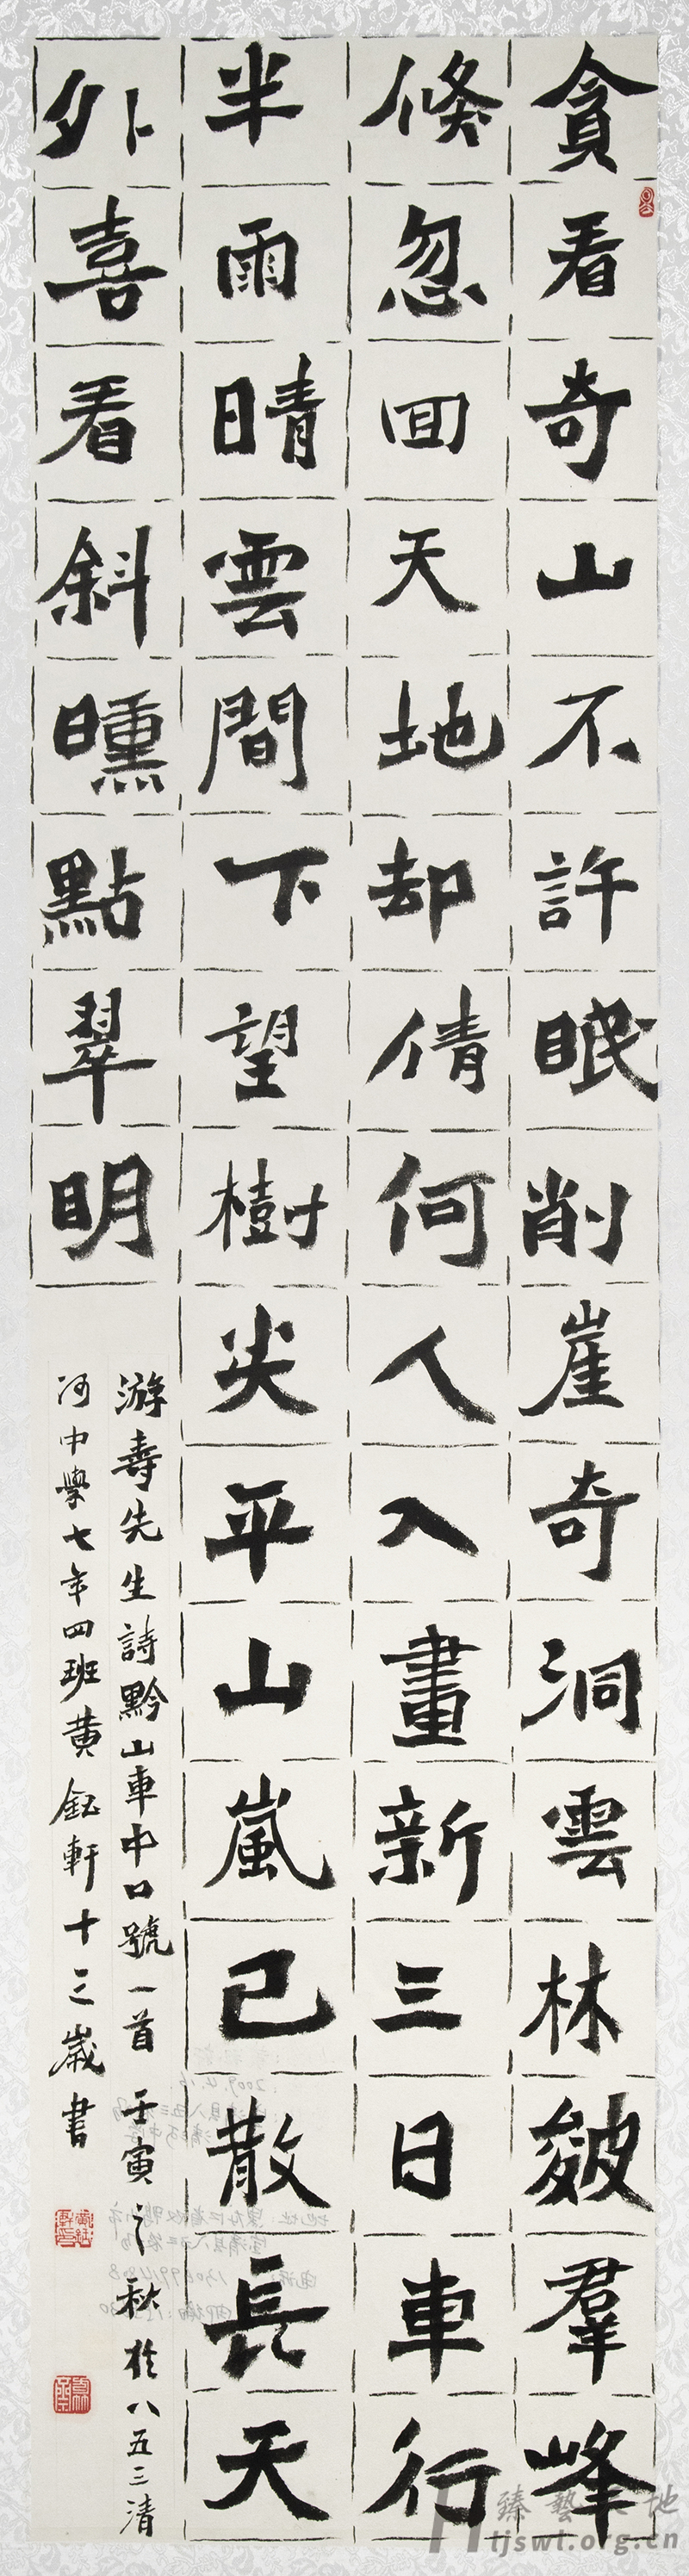 貪看奇山不許眠削崖奇洞雲林皴羣峰
倏忽回天地却倩何人入畫新三日車行
半雨晴雲間下望樹尖平山嵐已散長天
外喜看斜曛點翠明
游壽先生詩黔山車中口號一首 壬寅之秋於八五三清
河中學七年四班黄鈺軒十三歲書
臻藝 地
tjswl.org.cn